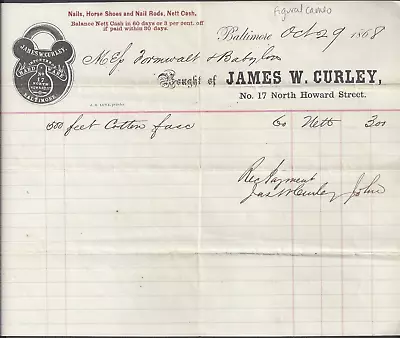 figural cameo
Nails, Horse Shoes and Nail Rods, Nett Cash,
Balance Nett Cash in 60 days or 3 per cent. off
if paid within 30 days.
Baltimore Oct 29 1868
JAMES W. CURLEY,
IMPORTER
HARDWARE
17
BALTIMORE
Mess Formwalt & Babylon
Bought of JAMES W. CURLEY,
No. 17 North Howard Street.
500 feet Cotton fuse 60 Nett 300
Rec Payment
Jas W Curley